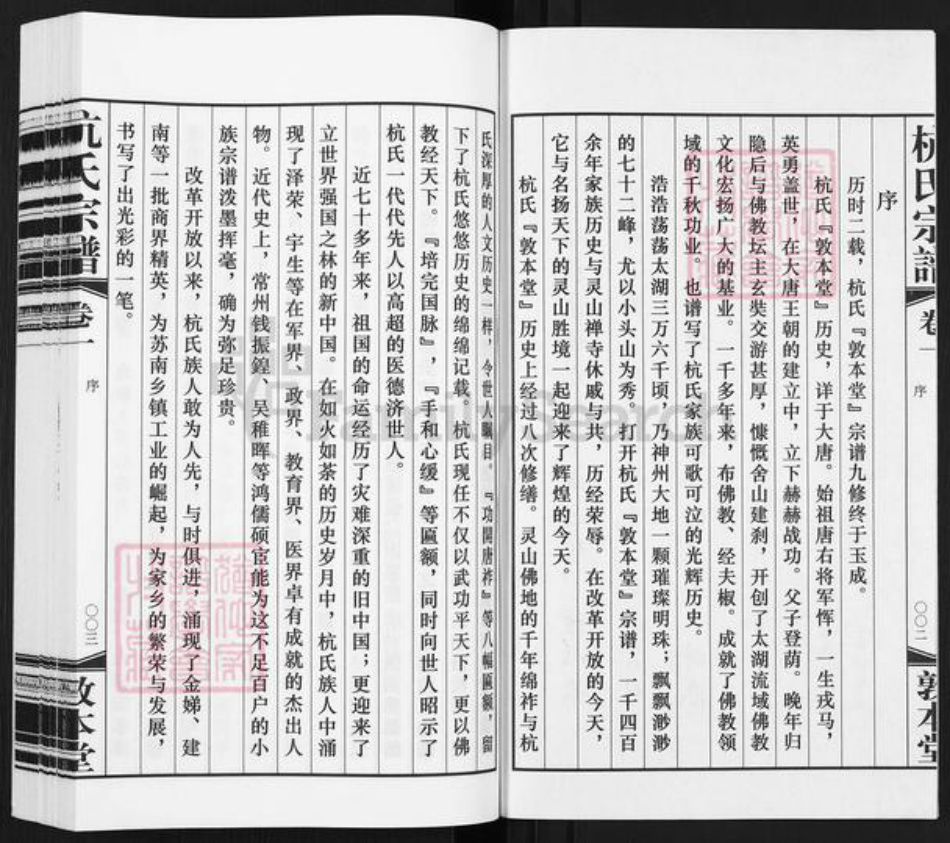 杭氏宗谱
卷一
序
〇〇二
敦本堂
序
历时二载，杭氏『敦本堂』宗谱九修终于玉成。
杭氏『敦本堂』历史，详于大唐。始祖唐右将军恽，一生戎马，
英勇盖世，在大唐王朝的建立中，立下赫赫战功。父子登荫。晚年归
隐后与佛教坛主玄奘交游甚厚，慷慨舍山建刹，开创了太湖流域佛教
文化宏扬广大的基业。一千多年来，布佛教、经夫椒。成就了佛教领
域的千秋功业。也谱写了杭氏家族可歌可泣的光辉历史。
浩浩荡荡太湖三万六千顷，乃神州大地一颗璀璨明珠；飘飘渺渺
的七十二峰，尤以小头山为秀。打开杭氏『敦本堂』宗谱，一千四百
余年家族历史与灵山禅寺休戚与共，历经荣辱。在改革开放的今天，
它与名扬天下的灵山胜境一起迎来了辉煌的今天。
杭氏『敦本堂』历史上经过八次修缮。灵山佛地的千年绵祚与杭
氏深厚的人文历史一样，令世人瞩目。『功開唐祚』等八幅匾额，留
下了杭氏悠悠历史的绵绵记载。杭氏现任不仅以武功平天下，更以佛
教经天下。『培完国脉』，『手和心缓』等匾额，同时向世人昭示了
杭氏一代代先人以高超的医德济世人。
近七十多年来，祖国的命运经历了灾难深重的旧中国；更迎来了
立世界强国之林的新中国。在如火如荼的历史岁月中，杭氏族人中涌
现了泽荣、宇生等在军界、政界、教育界、医界卓有成就的杰出人
物。近代史上，常州钱振鍠、吴稚晖等鸿儒硕宦能为这不足百户的小
族宗谱泼墨挥毫，确为弥足珍贵。
改革开放以来，杭氏族人敢为人先，与时俱进，涌现了金娣、建
南等一批商界精英，为苏南乡镇工业的崛起，为家乡的繁荣与发展，
书写了出光彩的一笔。
杭氏宗谱
卷一
序
〇〇三
敦本堂
FamilySearch